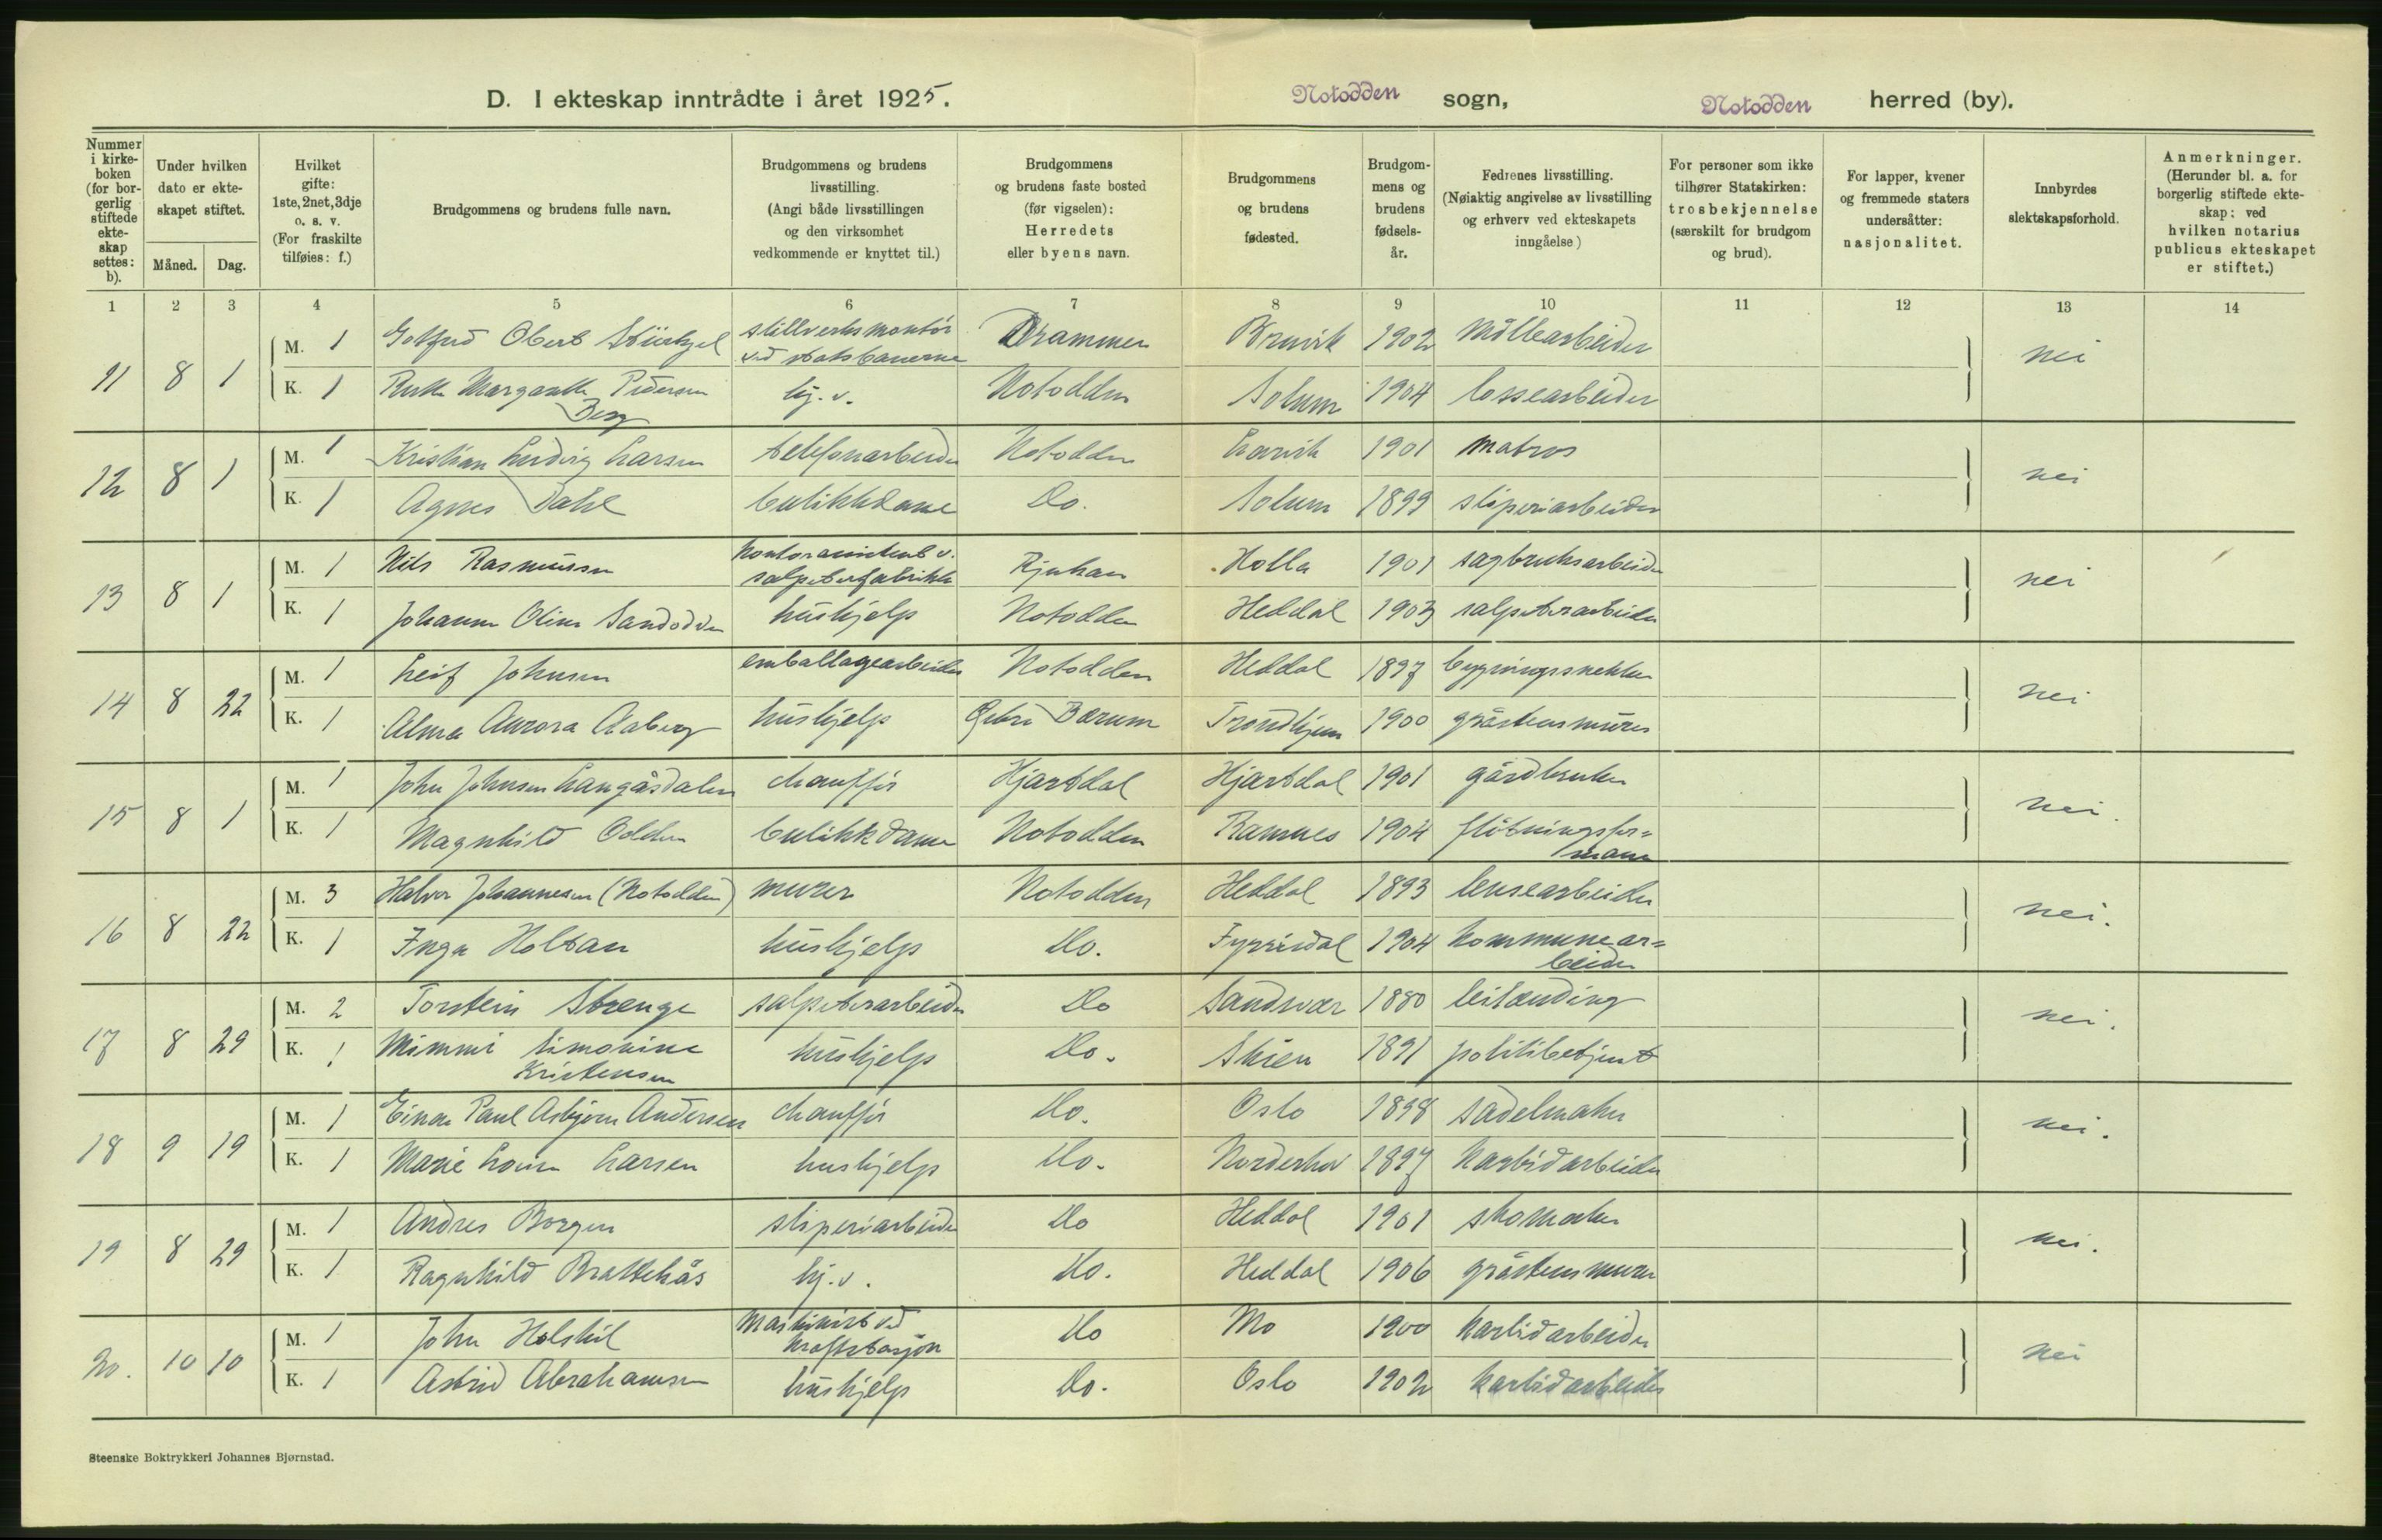 D. I ekteskap inntrådte i året 1925.
Notodden sogn, Notodden herred (by).
Nummer i kirkeboken (for borgerlig stiftede ekteskap settes: b).
Under hvilken dato er ekteskapet stiftet.
Måned. Dag.
Hvilket gifte: 1ste, 2net, 3dje o. s. v. (For fraskilte tilføies: f.)
Brudgommens og brudens fulle navn.
Brudgommens og brudens livsstilling. (Angi både livsstillingen og den virksomhet vedkommende er knyttet til.)
Brudgommens og brudens faste bosted (før vigselen): Herredets eller byens navn.
Brudgommens og brudens fødested.
Brudgommens og brudens fødselsår.
Fedrenes livsstilling. (Nøiaktig angivelse av livsstilling og erhverv ved ekteskapets inngåelse)
For personer som ikke tilhører Statskirken: trosbekjennelse (særskilt for brudgom og brud).
For lapper, kvener og fremmede staters undersåtter: nasjonalitet.
Innbyrdes slektskapsforhold.
Anmerkninger. (Herunder bl. a. for borgerlig stiftede ekteskap: ved hvilken notarius publicus ekteskapet er stiftet.)
1 2 3 4 5 6 7 8 9 10 11 12 13 14
11 8 1 M. 1 Obert stillverksmontør ved statsbanerne Drammen 1902 Möllearbeider nei
K. 1 Ruth Margarethe Pedersen Berg hj. v. Notodden Solum 1904 lossearbeider
12 8 1 M. 1 Kristian Ludvig Larsen telefonarbeider Notodden Larvik 1901 matros nei
K. 1 Agnes Dahl butikkdame Do. Solum 1899 sliperiarbeider
13 8 1 M. 1 Nils Rasmussen kontorassistent v. salpeterfabrikk Rjukan Holla 1901 sagbruksarbeider nei
K. 1 Johanne Oline Sandodden hushjelp Notodden Heddal 1903 salpeterarbeider
14 8 22 M. 1 Leif Johnsen emballagearbeider Notodden Heddal 1897 bygningssnekker nei
K. 1 Alma Aurora Aaberg hushjelp Bærum Trondhjem 1900 gråstensmurer
15 8 1 M. 1 John Johnsen Langåsdalen chauffør Hjartdal Hjartdal 1901 gårdbruker nei.
K. 1 Magnhild Odden butikkdame Notodden Ramnes 1904 fløtningsformann
16 8 22 M. 3 Halvor Johannesen (Notodden) murer Notodden Heddal 1893 lensearbeider nei.
K. 1 Inga Holtan hushjelp Do. Fyrisdal 1904 kommunearbeider
17 8 29 M. 2 Torstein Strenge salpeterarbeider Do Sandsvær 1880 leilending nei.
K. 1 Mimmi Simonine Kristensen hushjelp Do. Skien 1891 politibetjent
18 9 19 M. 1 Einar Paul Asbjørn Andersen chauffør Do. Oslo 1898 sadelmaker nei.
K. 1 Marie Lovise Larsen hushjelp Do. Norderhov 1897 karbidarbeider
19 8 29 M. 1 Andres Borgen sliperiarbeider Do Heddal 1901 skomaker nei.
K. 1 Ragnhild Brattekås hj. v. Do. Heddal 1906 gråstensmurer
20. 10 10 M. 1 John Holskil maskinist ved kraftstasjon Do Mo 1900 karbidarbeider nei
K. 1 Astrid Abrahamsen hushjelp Do. Oslo 1902 karbidarbeider
Steenske Boktrykkeri Johannes Bjørnstad.